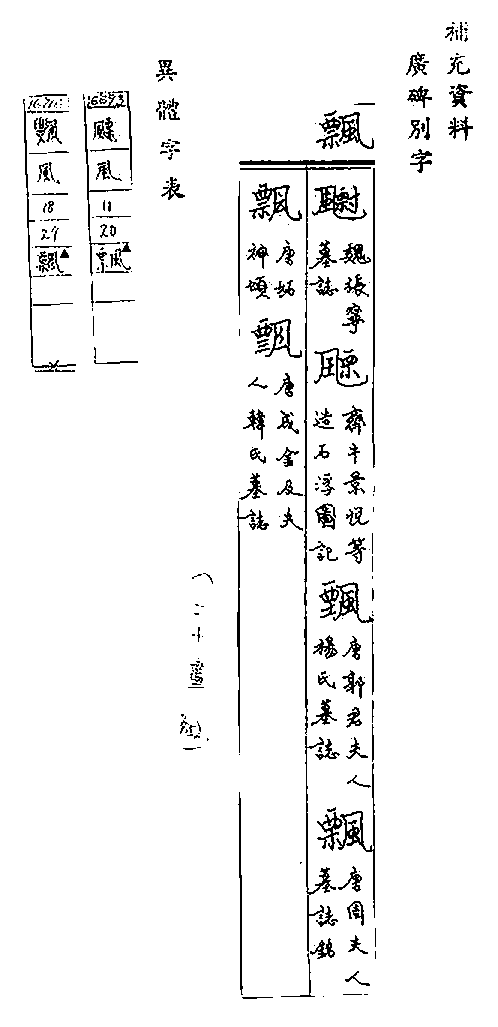 補充資料
廣碑別字
飄
魏張寧
墓誌
齊牛景悅等
造石浮圖記
飄
唐郭君夫人
楊氏墓誌
飄
唐周夫人
墓誌銘
飄
唐
神頌
飄
唐成金及夫
人韓氏墓誌
二十畫
異體字表
風
11
20
飄
風
18
29
飄